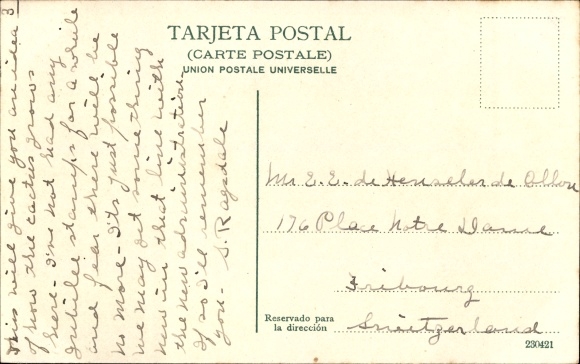 3
TARJETA POSTAL
(CARTE POSTALE)
UNION POSTALE UNIVERSELLE
This will give you an idea
of how the cactus grows
here - I've not had any
Jubilee stamps for a while
and fear there will be
no more - It's just possible
we may get something
new in that line with
the new administration.
If so I'll remember
you - S. Ragsdale
Mr E. E. de Henseler de
176 Place Notre Dame
Fribourg
Switzerland
Reservado para
la dirección
230421